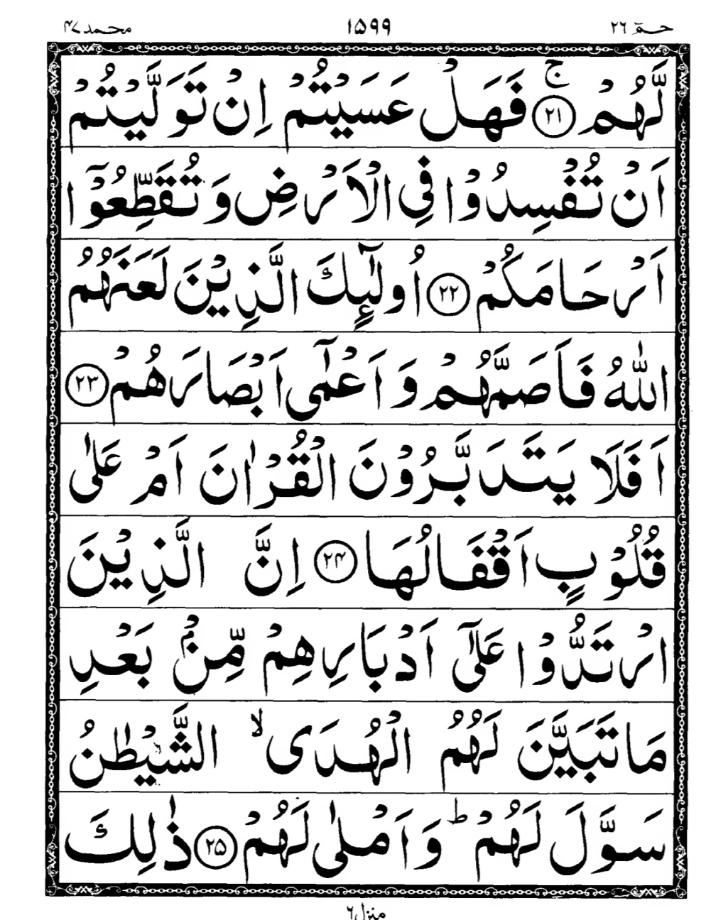 حٰمٓ ٢٦ ١٥٩٩ محمد ٤٧
لَّهُمْ ۚ﴿٢١﴾ فَهَلْ عَسَيْتُمْ اِنْ تَوَلَّيْتُمْ
اَنْ تُفْسِدُوْا فِي الْاَرْضِ وَ تُقَطِّعُوْٓا
اَرْحَامَكُمْ ﴿٢٢﴾ اُولٰٓئِكَ الَّذِيْنَ لَعَنَهُمُ
اللّٰهُ فَاَصَمَّهُمْ وَ اَعْمٰٓى اَبْصَارَهُمْ ﴿٢٣﴾
اَفَلَا يَتَدَبَّرُوْنَ الْقُرْاٰنَ اَمْ عَلٰى
قُلُوْبٍ اَقْفَالُهَا ﴿٢٤﴾ اِنَّ الَّذِيْنَ
ارْتَدُّوْا عَلٰٓى اَدْبَارِهِمْ مِّنْۢ بَعْدِ
مَا تَبَيَّنَ لَهُمُ الْهُدَى ۙ الشَّيْطٰنُ
سَوَّلَ لَهُمْ ؕ وَ اَمْلٰى لَهُمْ ﴿٢٥﴾ ذٰلِكَ
منزل ٦